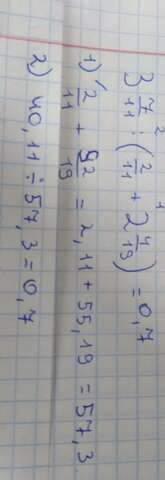 3 7/11 : (2/11 + 2 4/19) = 0,7
1) 2/11 + 92/19 = 2,11 + 55,19 = 57,3
2) 40,11 : 57,3 = 0,7